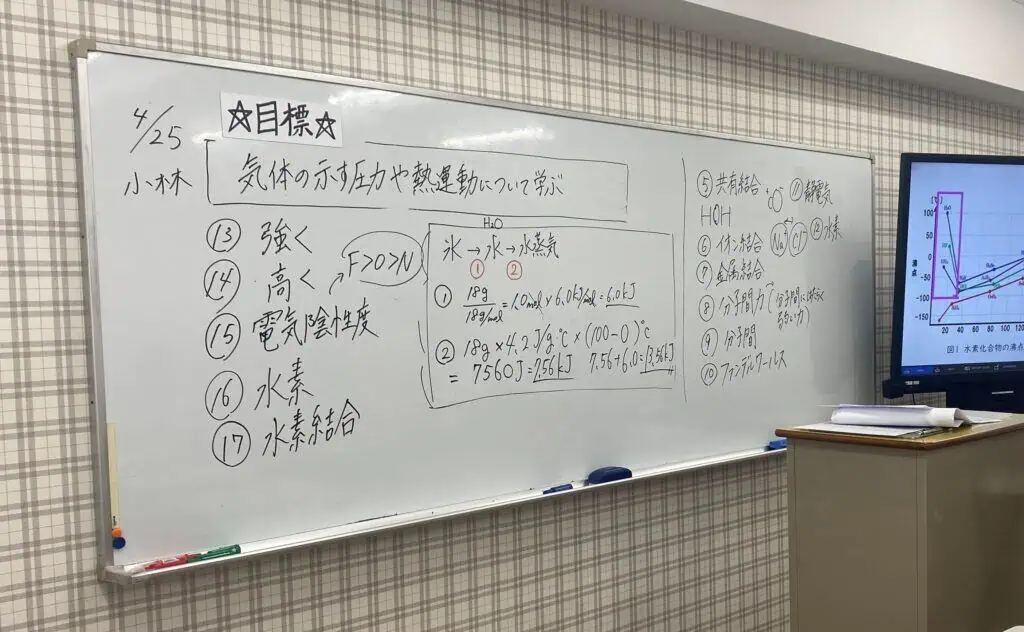 4/25
小林
☆目標☆
気体の示す圧力や熱運動について学ぶ
⑬ 強く
⑭ 高く
F>O>N
⑮ 電気陰性度
⑯ 水素
⑰ 水素結合
H₂O
氷→水→水蒸気
① ②
① 18g/18g/mol=1.0mol×6.0kJ/mol=6.0kJ
② 18g×4.2J/g・℃×(100-0)℃
=7560J=7.56kJ 7.56+6.0=13.56kJ
⑤ 共有結合
⑪ 静電気
HOH
⑥ イオン結合 Na⁺ Cl⁻ ⑫ 水素
⑦ 金属結合
⑧ 分子間力(分子間にはたらく弱い力)
⑨ 分子間
⑩ ファンデルワールス
[℃]
沸点
100
50
0
-50
-100
-150
20 40 60 80 100 120
図1 水素化合物の沸点